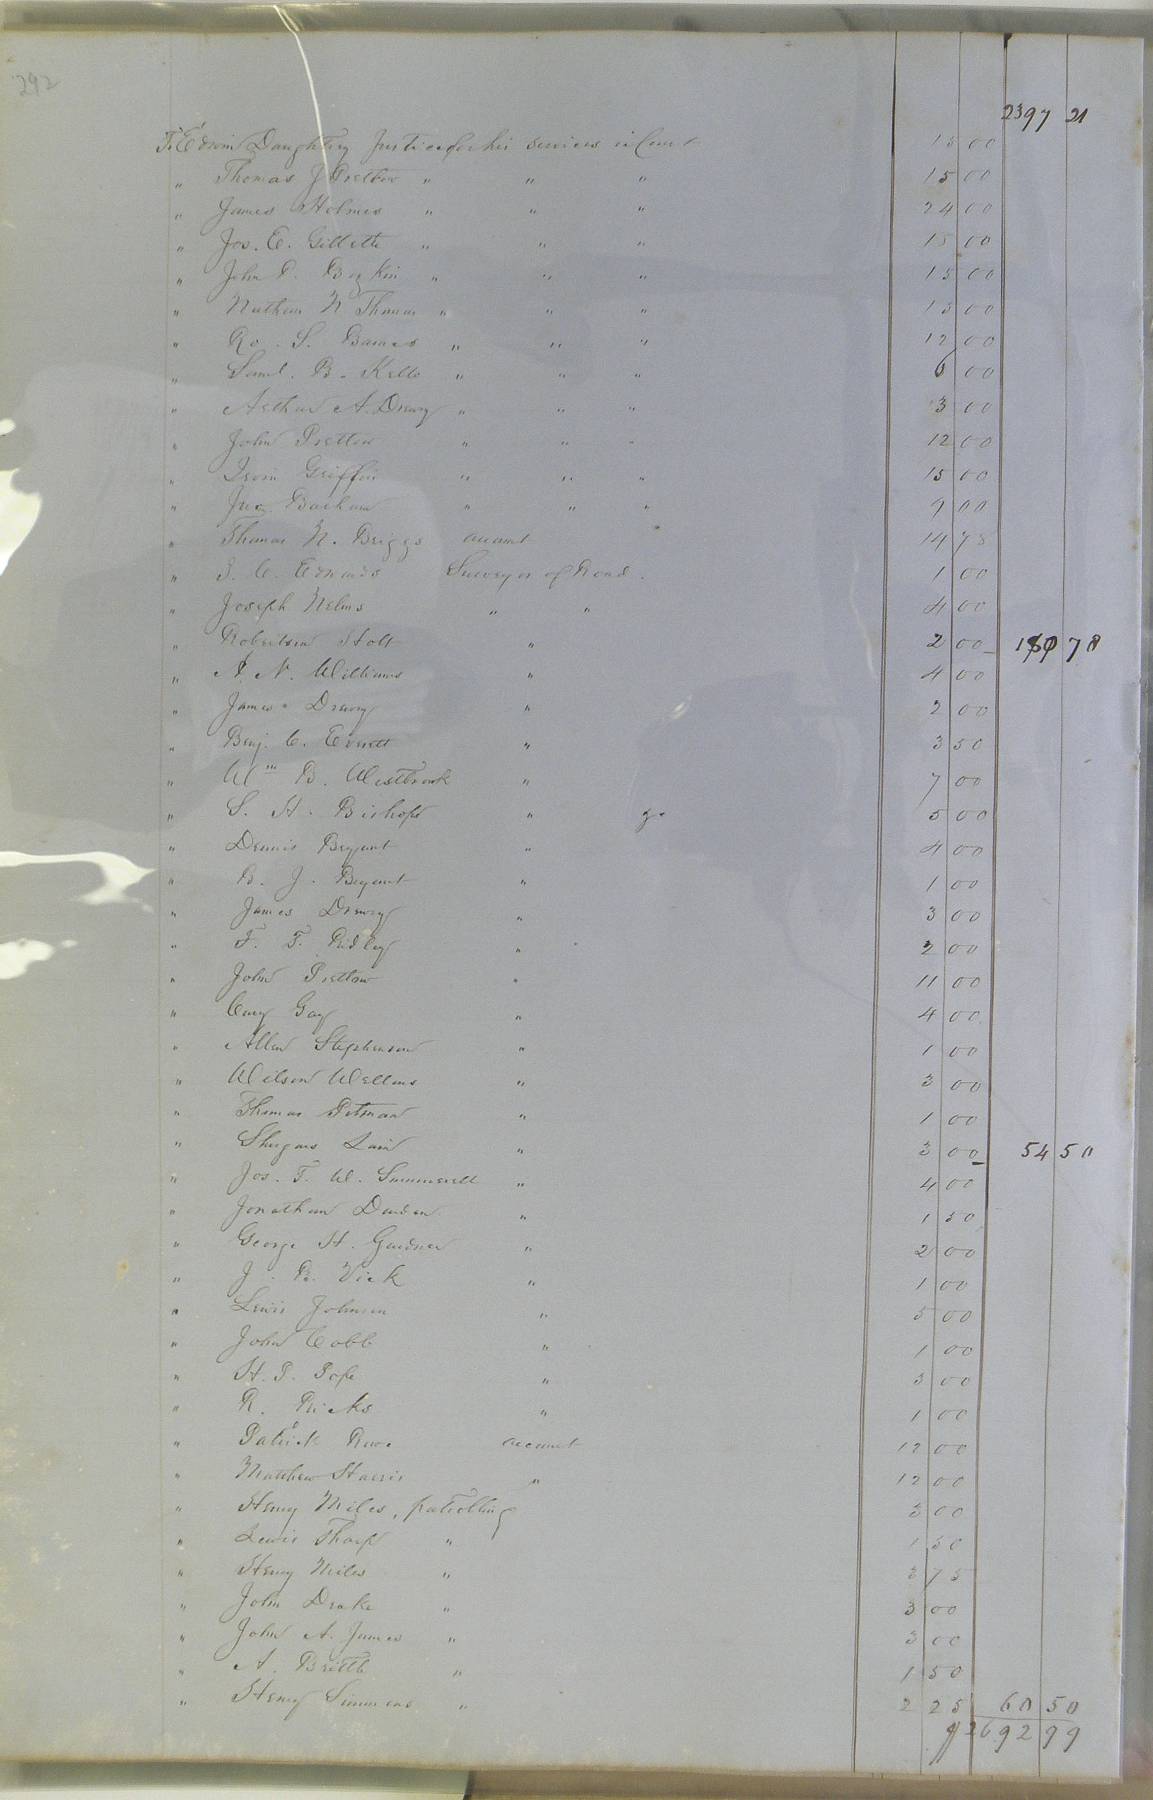 292
2397 21
To Edwin Daughtrey Justice for his services in Court 15 00
" Thomas J Pretlow " " " 15 00
" James Holmes " " " 24 00
" Jos. E. Gillette " " " 15 00
" John D. Boykin " " " 15 00
" Nathan N Thomas " " " 15 00
" Ro. S. Barnes " " " 12 00
" Saml. B. Kello " " " 6 00
" Arthur A. Drewry " " " 3 00
" John Pretlow " " " 12 00
" Irvin Griffin " " " 15 00
" Jno Barham " " " 9 00
" Thomas N. Briggs account 14 78
" Edwards Surveyor of Road. 1 00
" Joseph Nelms " " 4 00
" Robertson Holt " 2 00 7 8
" A. N. Williams " 4 00
" James Drewry " 2 00
" Benj. C. Everett " 3 50
" Wm B. Westbrook " 7 00
" S. H. Bishop " 5 00
" Dennis Bryant " 4 00
" B. J. Bryant " 1 00
" James Drewry " 3 00
" F. T. Ridley " 2 00
" John Pretlow " 11 00
" Cary Gay " 4 00
" Allen Stephenson " 1 00
" Wilson Wellons " 3 00
" Thomas Pitman " 1 00
" Shugars Lain " 3 00 54 50
" Jos. T. W. Summerell " 4 00
" Jonathan Darden " 1 50
" George H. Gardner " 2 00
" J. B. Vick " 1 00
" Lewis Johnson " 5 00
" John Cobb " 1 00
" H. P. Pope " 3 00
" R. Ricks " 1 00
" Patrick Rowe account 12 00
" Matthew Harris " 12 00
" Henry Miles, patrolling 3 00
" Lewis Tharp " 1 50
" Henry Miles " 3 75
" John Drake " 3 00
" John A. James " 3 00
" A. Brittle " 1 50
" Henry Simmons " 2 25 60 50
$ 2692 99